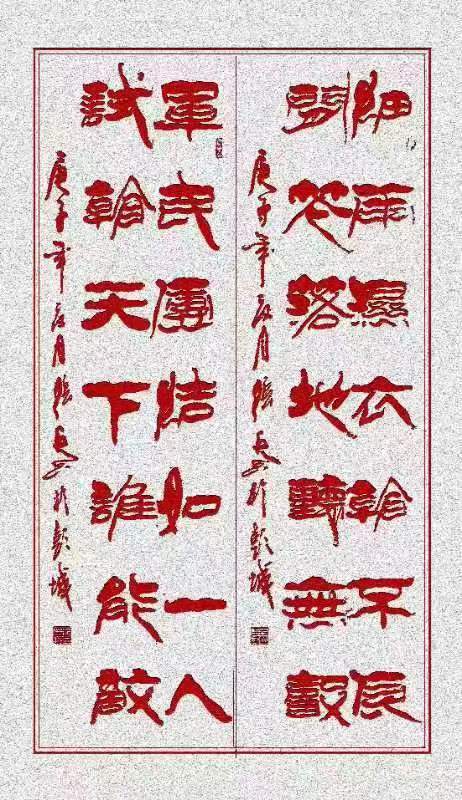 細雨濕衣看不見
閒花落地聽無聲
庚子年夏月張 於彭城
軍民團結如一人
試看天下誰能敵
庚子年夏月張 於彭城